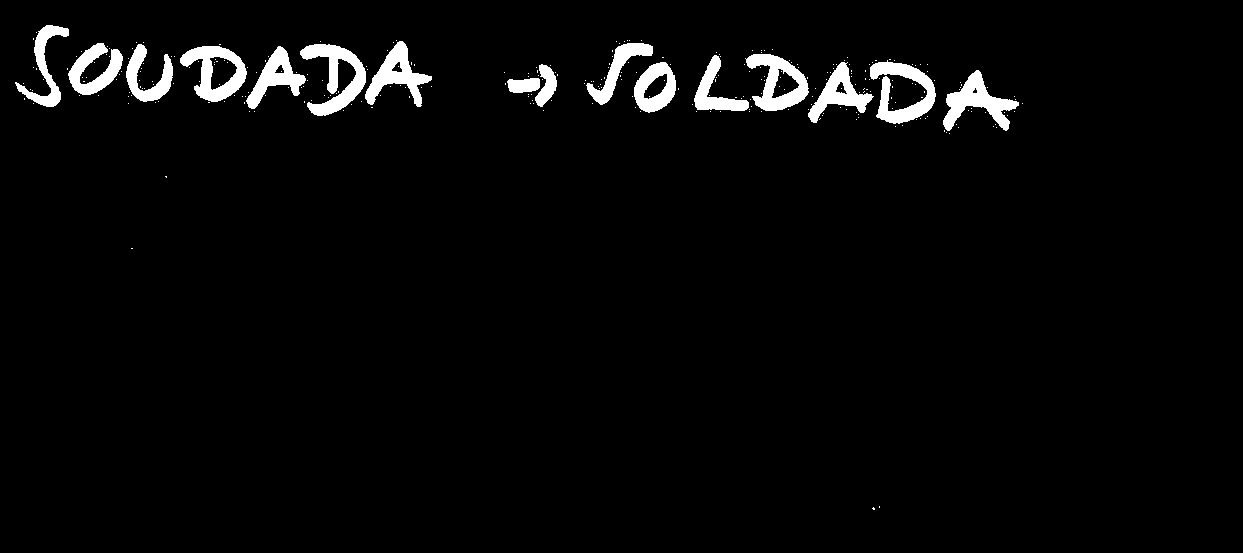 SOUDADA → SOLDADA